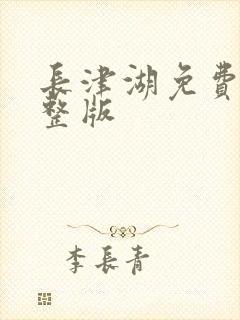 長津湖免費
整版
李長青